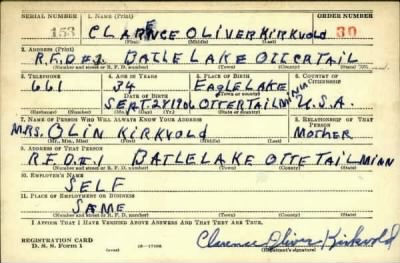 SERIAL NUMBER 1. NAME (Print) ORDER NUMBER
153 CLARENCE OLIVER KIRKVOLD 30
(First) (Middle) (Last)
2. ADDRESS (Print)
R.F.D#1 BATLE LAKE OTTERTAIL
(Number and street or R. F. D. number) (Town) (County) (State)
3. TELEPHONE 4. AGE IN YEARS 5. PLACE OF BIRTH 6. COUNTRY OF CITIZENSHIP
661 34 EAGLE LAKE
DATE OF BIRTH (Town or county)
SEPT. 24 1906 OTTERTAIL MINN U.S.A.
(Exchange) (Number) (Mo.) (Day) (Yr.) (State or country)
7. NAME OF PERSON WHO WILL ALWAYS KNOW YOUR ADDRESS 8. RELATIONSHIP OF THAT PERSON
MRS. OLIN KIRKVOLD MOTHER
(Mr., Mrs., Miss) (First) (Middle) (Last)
9. ADDRESS OF THAT PERSON
R.F.D#1 BATLELAKE OTTETAIL MINN
(Number and street or R. F. D. number) (Town) (County) (State)
10. EMPLOYER'S NAME
SELF
11. PLACE OF EMPLOYMENT OR BUSINESS
SAME
(Number and street or R. F. D. number) (Town) (County) (State)
I AFFIRM THAT I HAVE VERIFIED ABOVE ANSWERS AND THAT THEY ARE TRUE.
REGISTRATION CARD
D. S. S. Form 1 Clarence Oliver Kirkvold
(Registrant's signature)